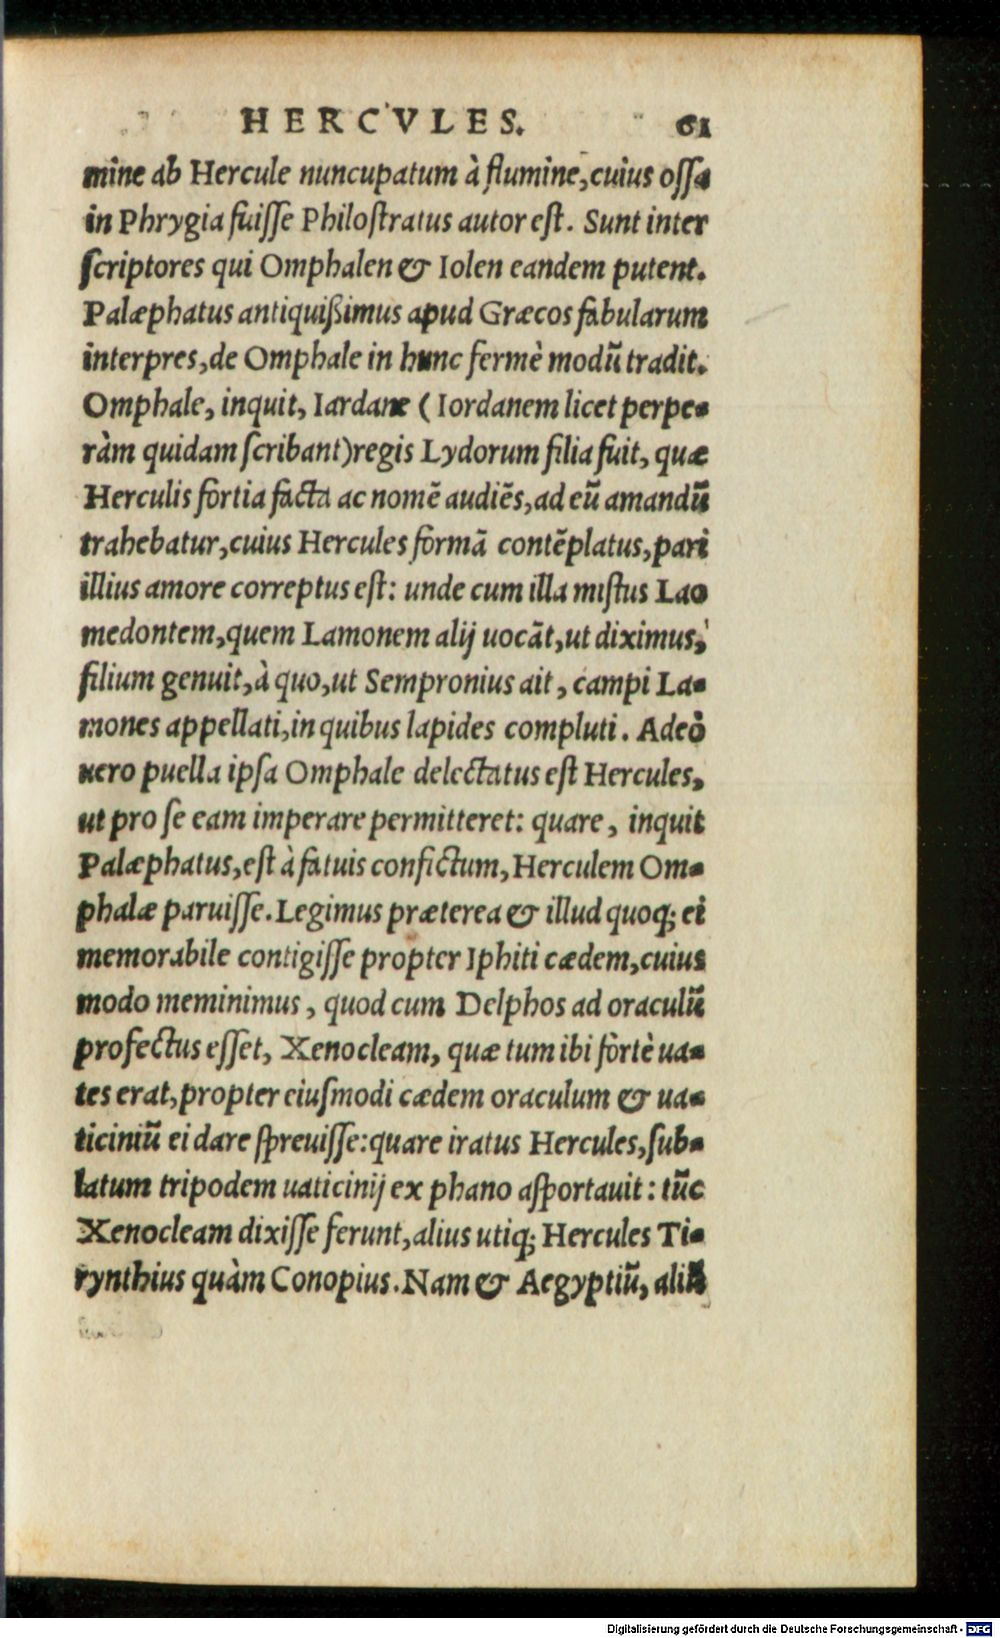 HERCVLES. 61
mine ab Hercule nuncupatum à flumine, cuius ossa
in Phrygia fuiſſe Philoſtratus autor eſt. Sunt inter
ſcriptores qui Omphalen & Iolen eandem putent.
Palæphatus antiquißimus apud Græcos fabularum
interpres, de Omphale in hunc fermè modū tradit.
Omphale, inquit, Iardanæ (Iordanem licet perpe-
ràm quidam ſcribant) regis Lydorum filia fuit, quæ
Herculis fortia facta ac nomē audiēs, ad eū amandū
trahebatur, cuius Hercules formā contēplatus, pari
illius amore correptus eſt: unde cum illa miſtus Lao
medontem, quem Lamonem alij uocāt, ut diximus,
filium genuit, à quo, ut Sempronius ait, campi La-
mones appellati, in quibus lapides compluti. Adeò
uero puella ipſa Omphale delectatus eſt Hercules,
ut pro ſe eam imperare permitteret: quare, inquit
Palæphatus, eſt à fatuis confictum, Herculem Om-
phalæ paruiſſe. Legimus præterea & illud quoq; ei
memorabile contigiſſe propter Iphiti cædem, cuius
modo meminimus, quod cum Delphos ad oraculū
profectus eſſet, Xenocleam, quæ tum ibi fortè ua-
tes erat, propter eiuſmodi cædem oraculum & ua-
ticiniū ei dare ſpreuiſſe: quare iratus Hercules, ſub-
latum tripodem uaticinij ex phano aſportauit: tūc
Xenocleam dixiſſe ferunt, alius utiq; Hercules Ti-
rynthius quàm Conopius. Nam & Aegyptiū, aliū
Digitalisierung gefördert durch die Deutsche Forschungsgemeinschaft - DFG